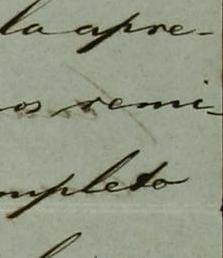 la apre-
os remi-
mpleto